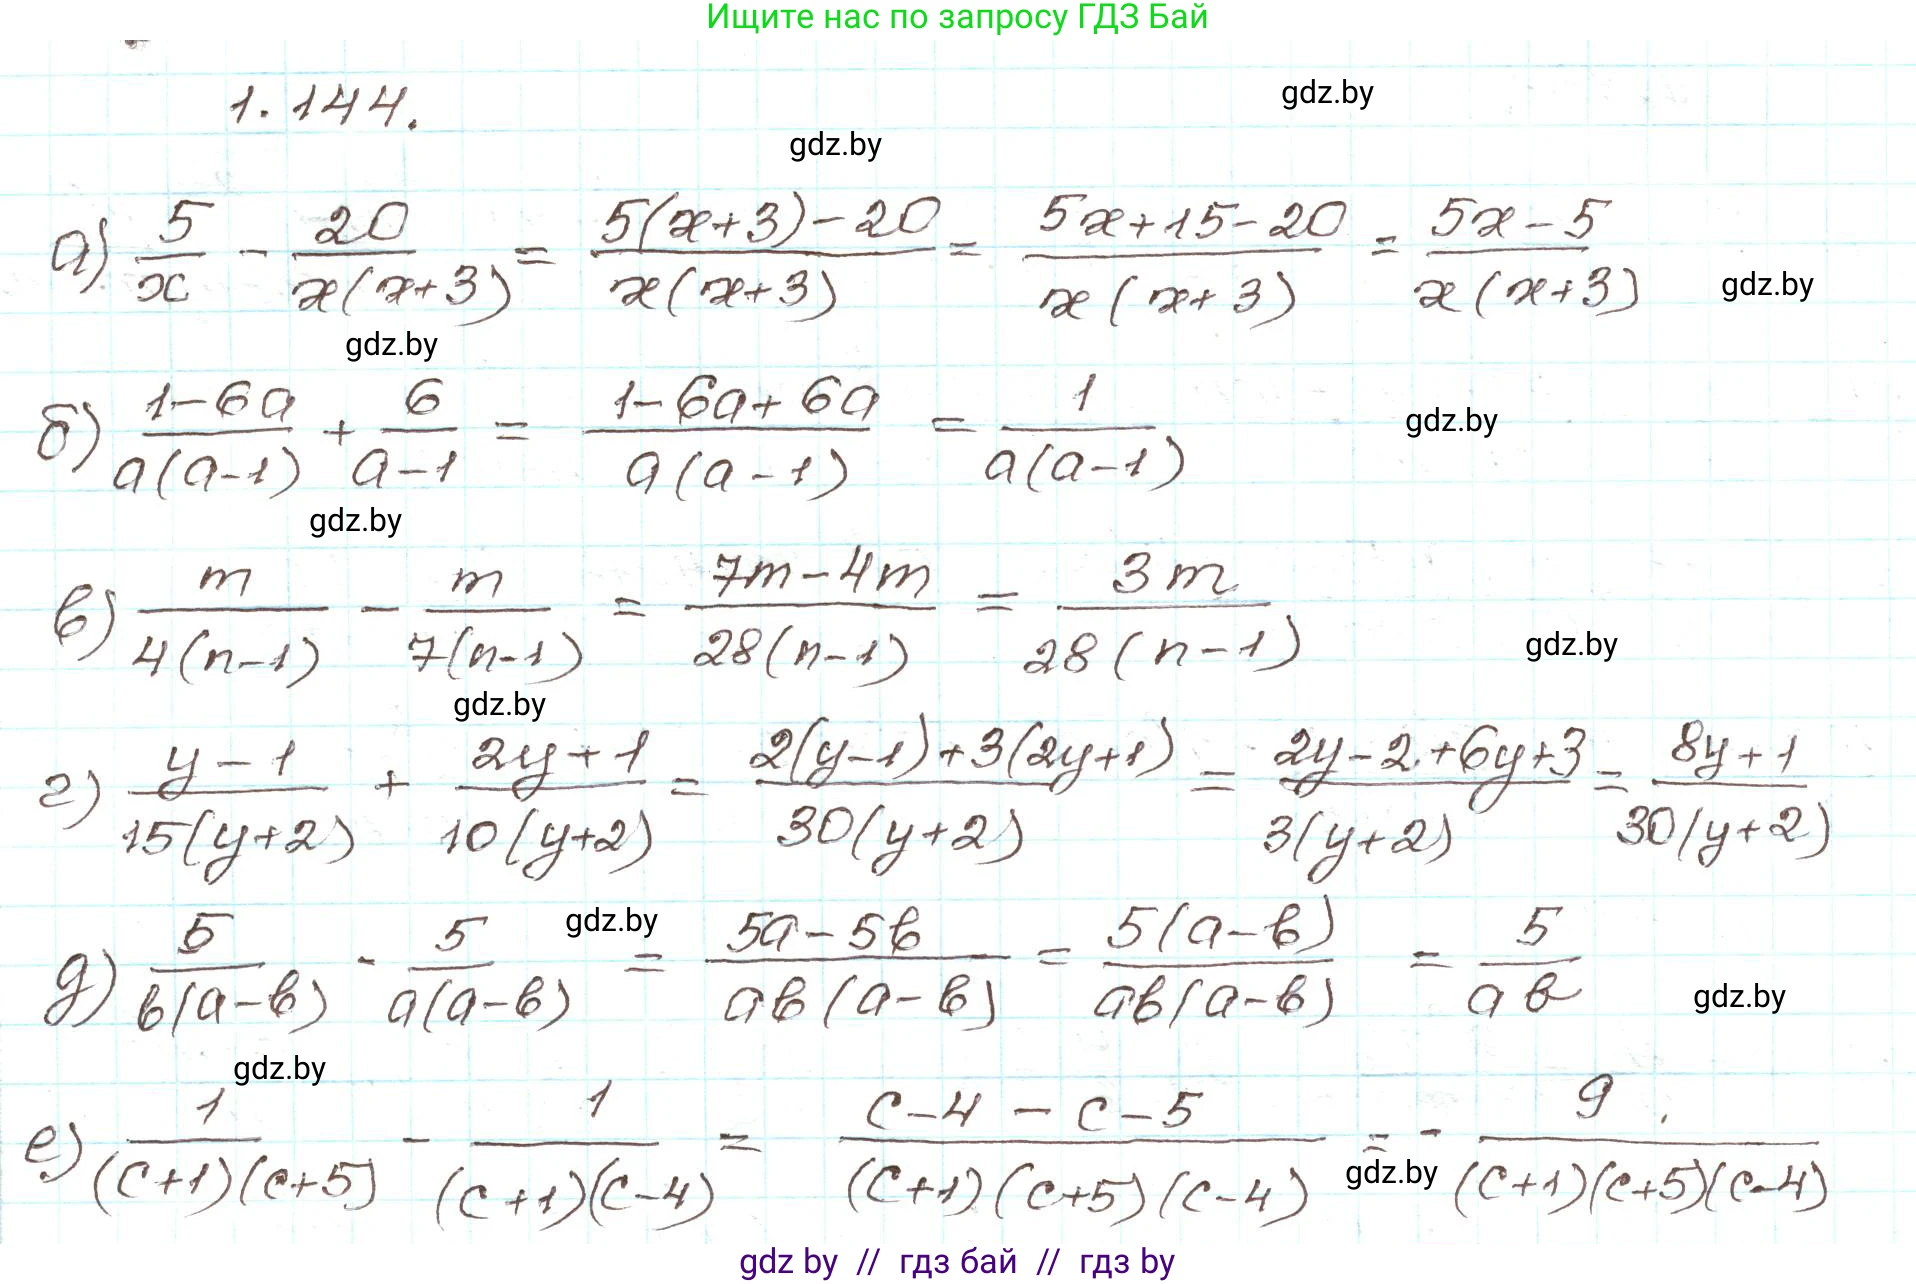 Ищите нас по запросу ГДЗ Бай
1.144.
gdz.by
gdz.by
а) 5/x - 20/(x(x+3)) = (5(x+3)-20)/(x(x+3)) = (5x+15-20)/(x(x+3)) = (5x-5)/(x(x+3))
gdz.by
gdz.by
б) (1-6a)/(a(a-1)) + 6/(a-1) = (1-6a+6a)/(a(a-1)) = 1/(a(a-1))
gdz.by
gdz.by
в) m/(4(n-1)) - m/(7(n-1)) = (7m-4m)/(28(n-1)) = 3m/(28(n-1))
gdz.by
gdz.by
г) (y-1)/(15(y+2)) + (2y+1)/(10(y+2)) = (2(y-1)+3(2y+1))/(30(y+2)) = (2y-2+6y+3)/(3(y+2)) = (8y+1)/(30(y+2))
gdz.by
д) 5/(b(a-b)) - 5/(a(a-b)) = (5a-5b)/(ab(a-b)) = (5(a-b))/(ab(a-b)) = 5/(ab)
gdz.by
gdz.by
е) 1/((c+1)(c+5)) - 1/((c+1)(c-4)) = (c-4-c-5)/((c+1)(c+5)(c-4)) = - 9/((c+1)(c+5)(c-4))
gdz.by
gdz by // гдз бай // гдз by